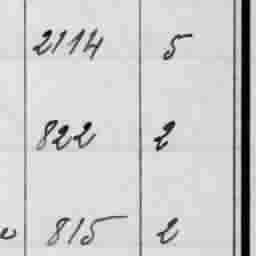 2114 5
822 2
815 2